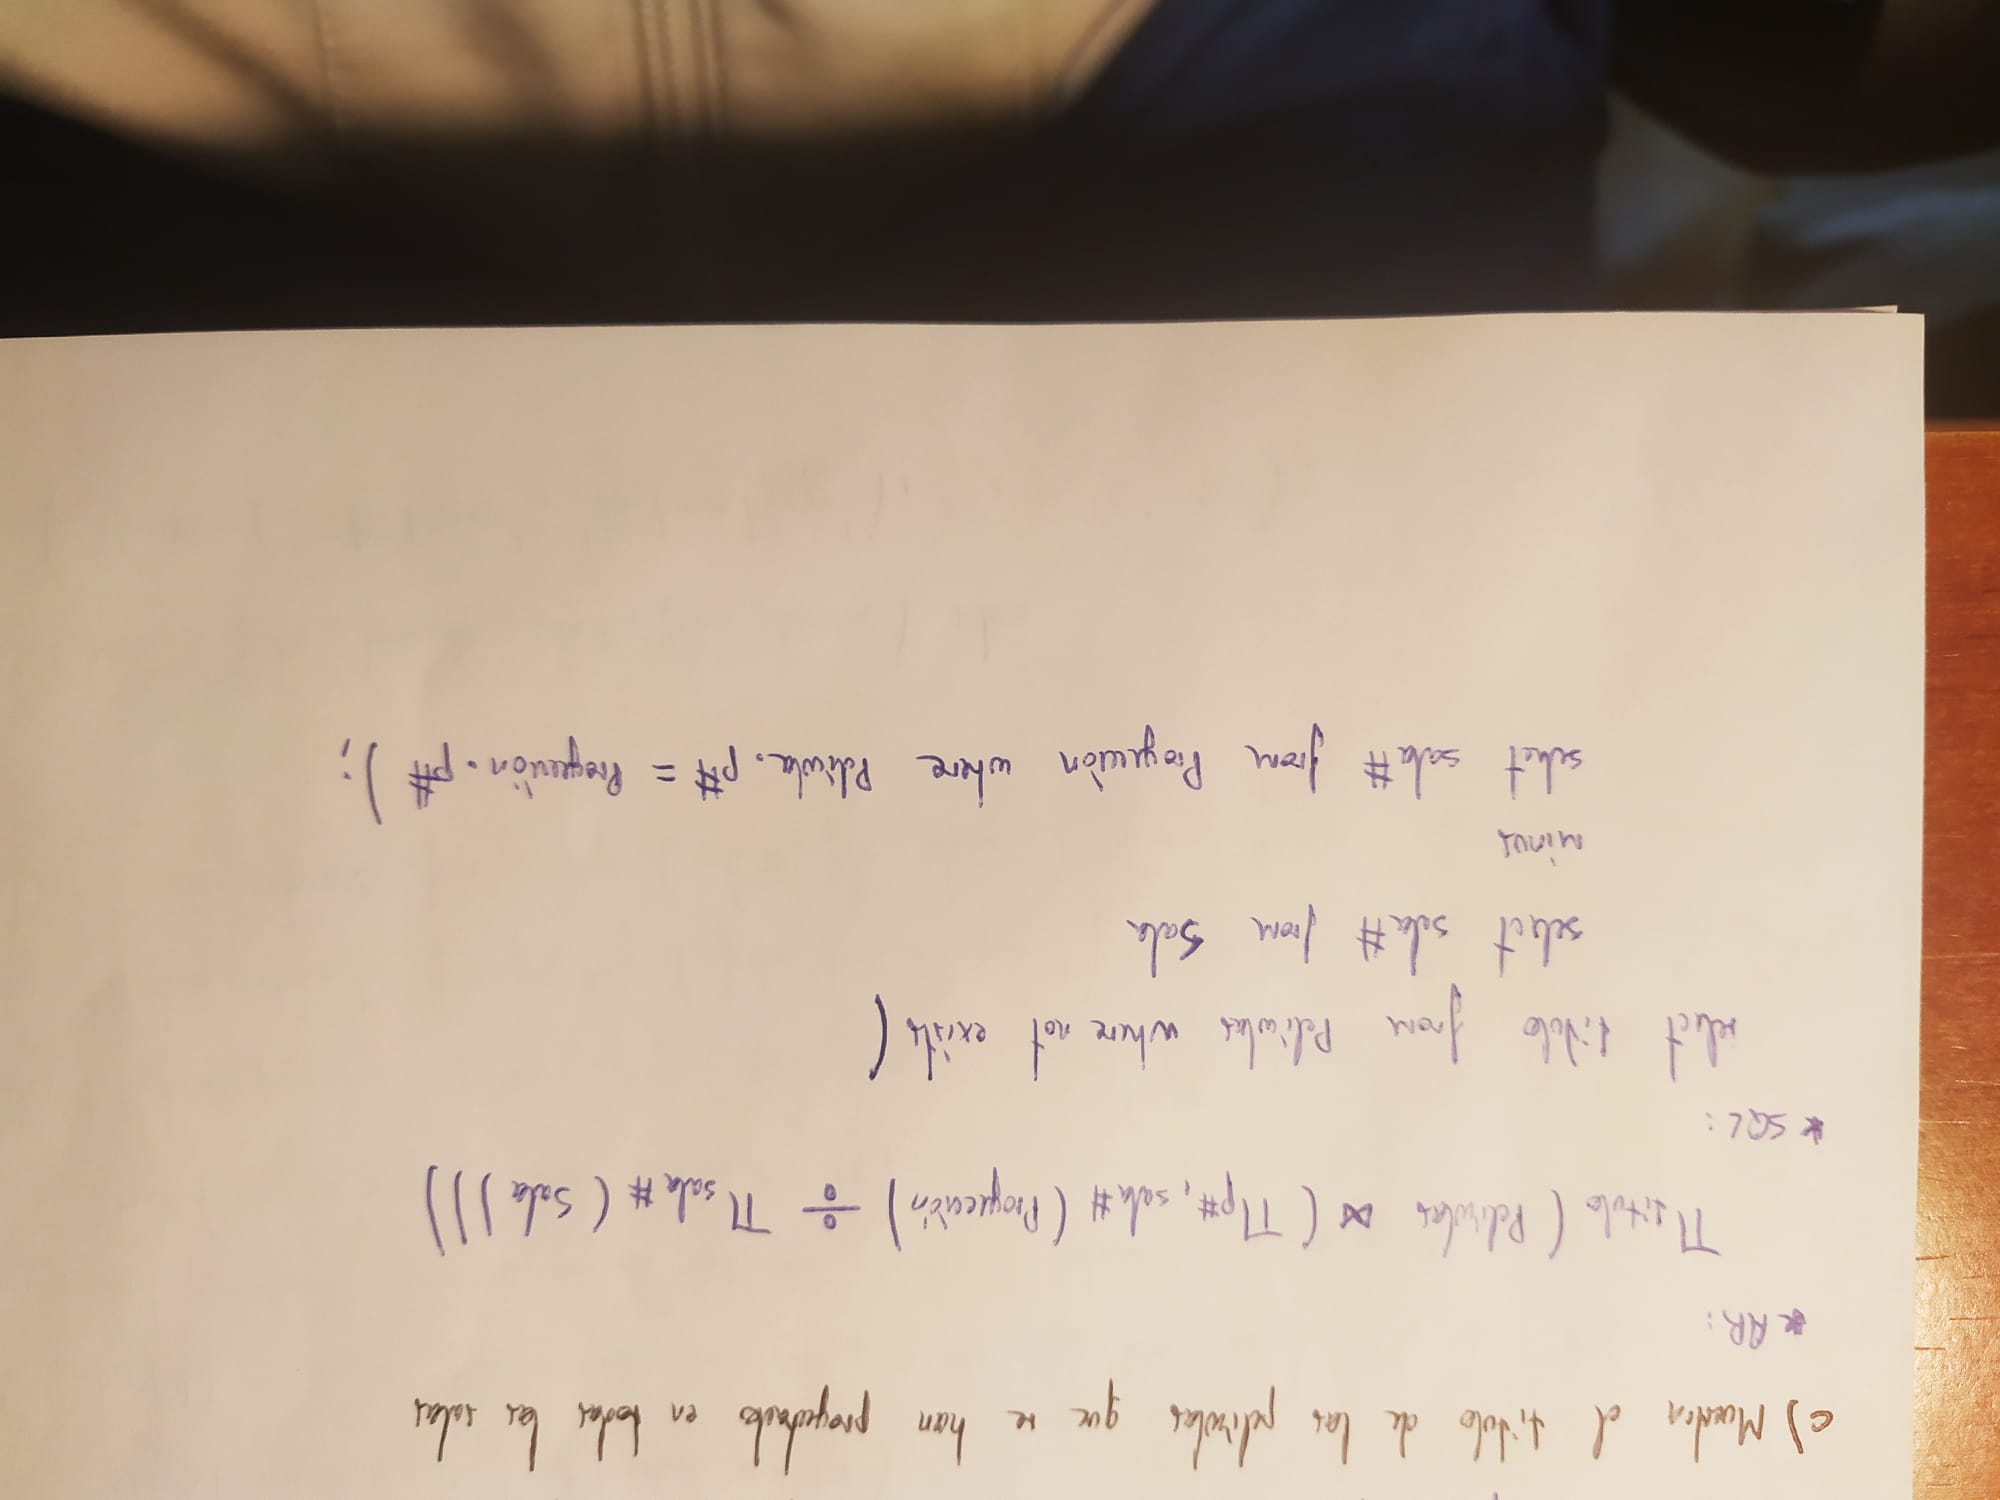 c) Muestra el título de las películas que se han proyectado en todas las salas
* AR:
π título (Películas ⋈ (π p#, sala# (Proyección) ÷ π sala# (Sala)))
* SQL:
select título from Películas where not exists (
select sala# from Sala
minus
select sala# from Proyección where Película.p# = Proyección.p# );